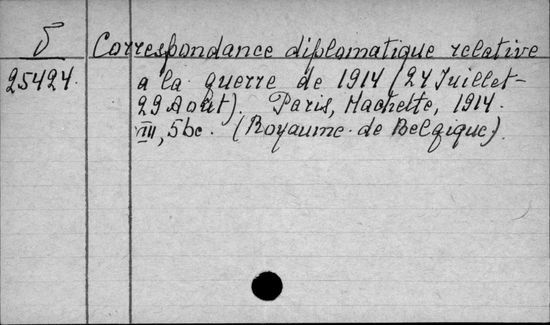 5 Correspondance diplomatique relative
25424. a la guerre de 1914 (24 Juillet-
29 Août). Paris, Hachette, 1914.
VIII, 56c. (Royaume de Belgique).